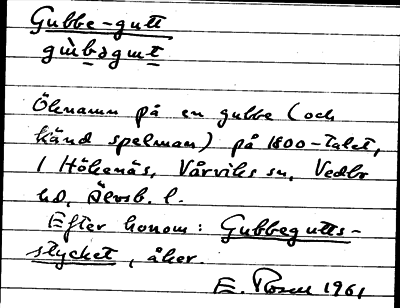 Gubbe-gutt
gùbəgut
Öknamn på en gubbe (och
känd spelman) på 1800-talet,
i Hökenäs, Vårviks sn, Vedbo
hd, Älvsb. l.
Efter honom: Gubbegutts-
stycket, åker.
E. Rosen 1961